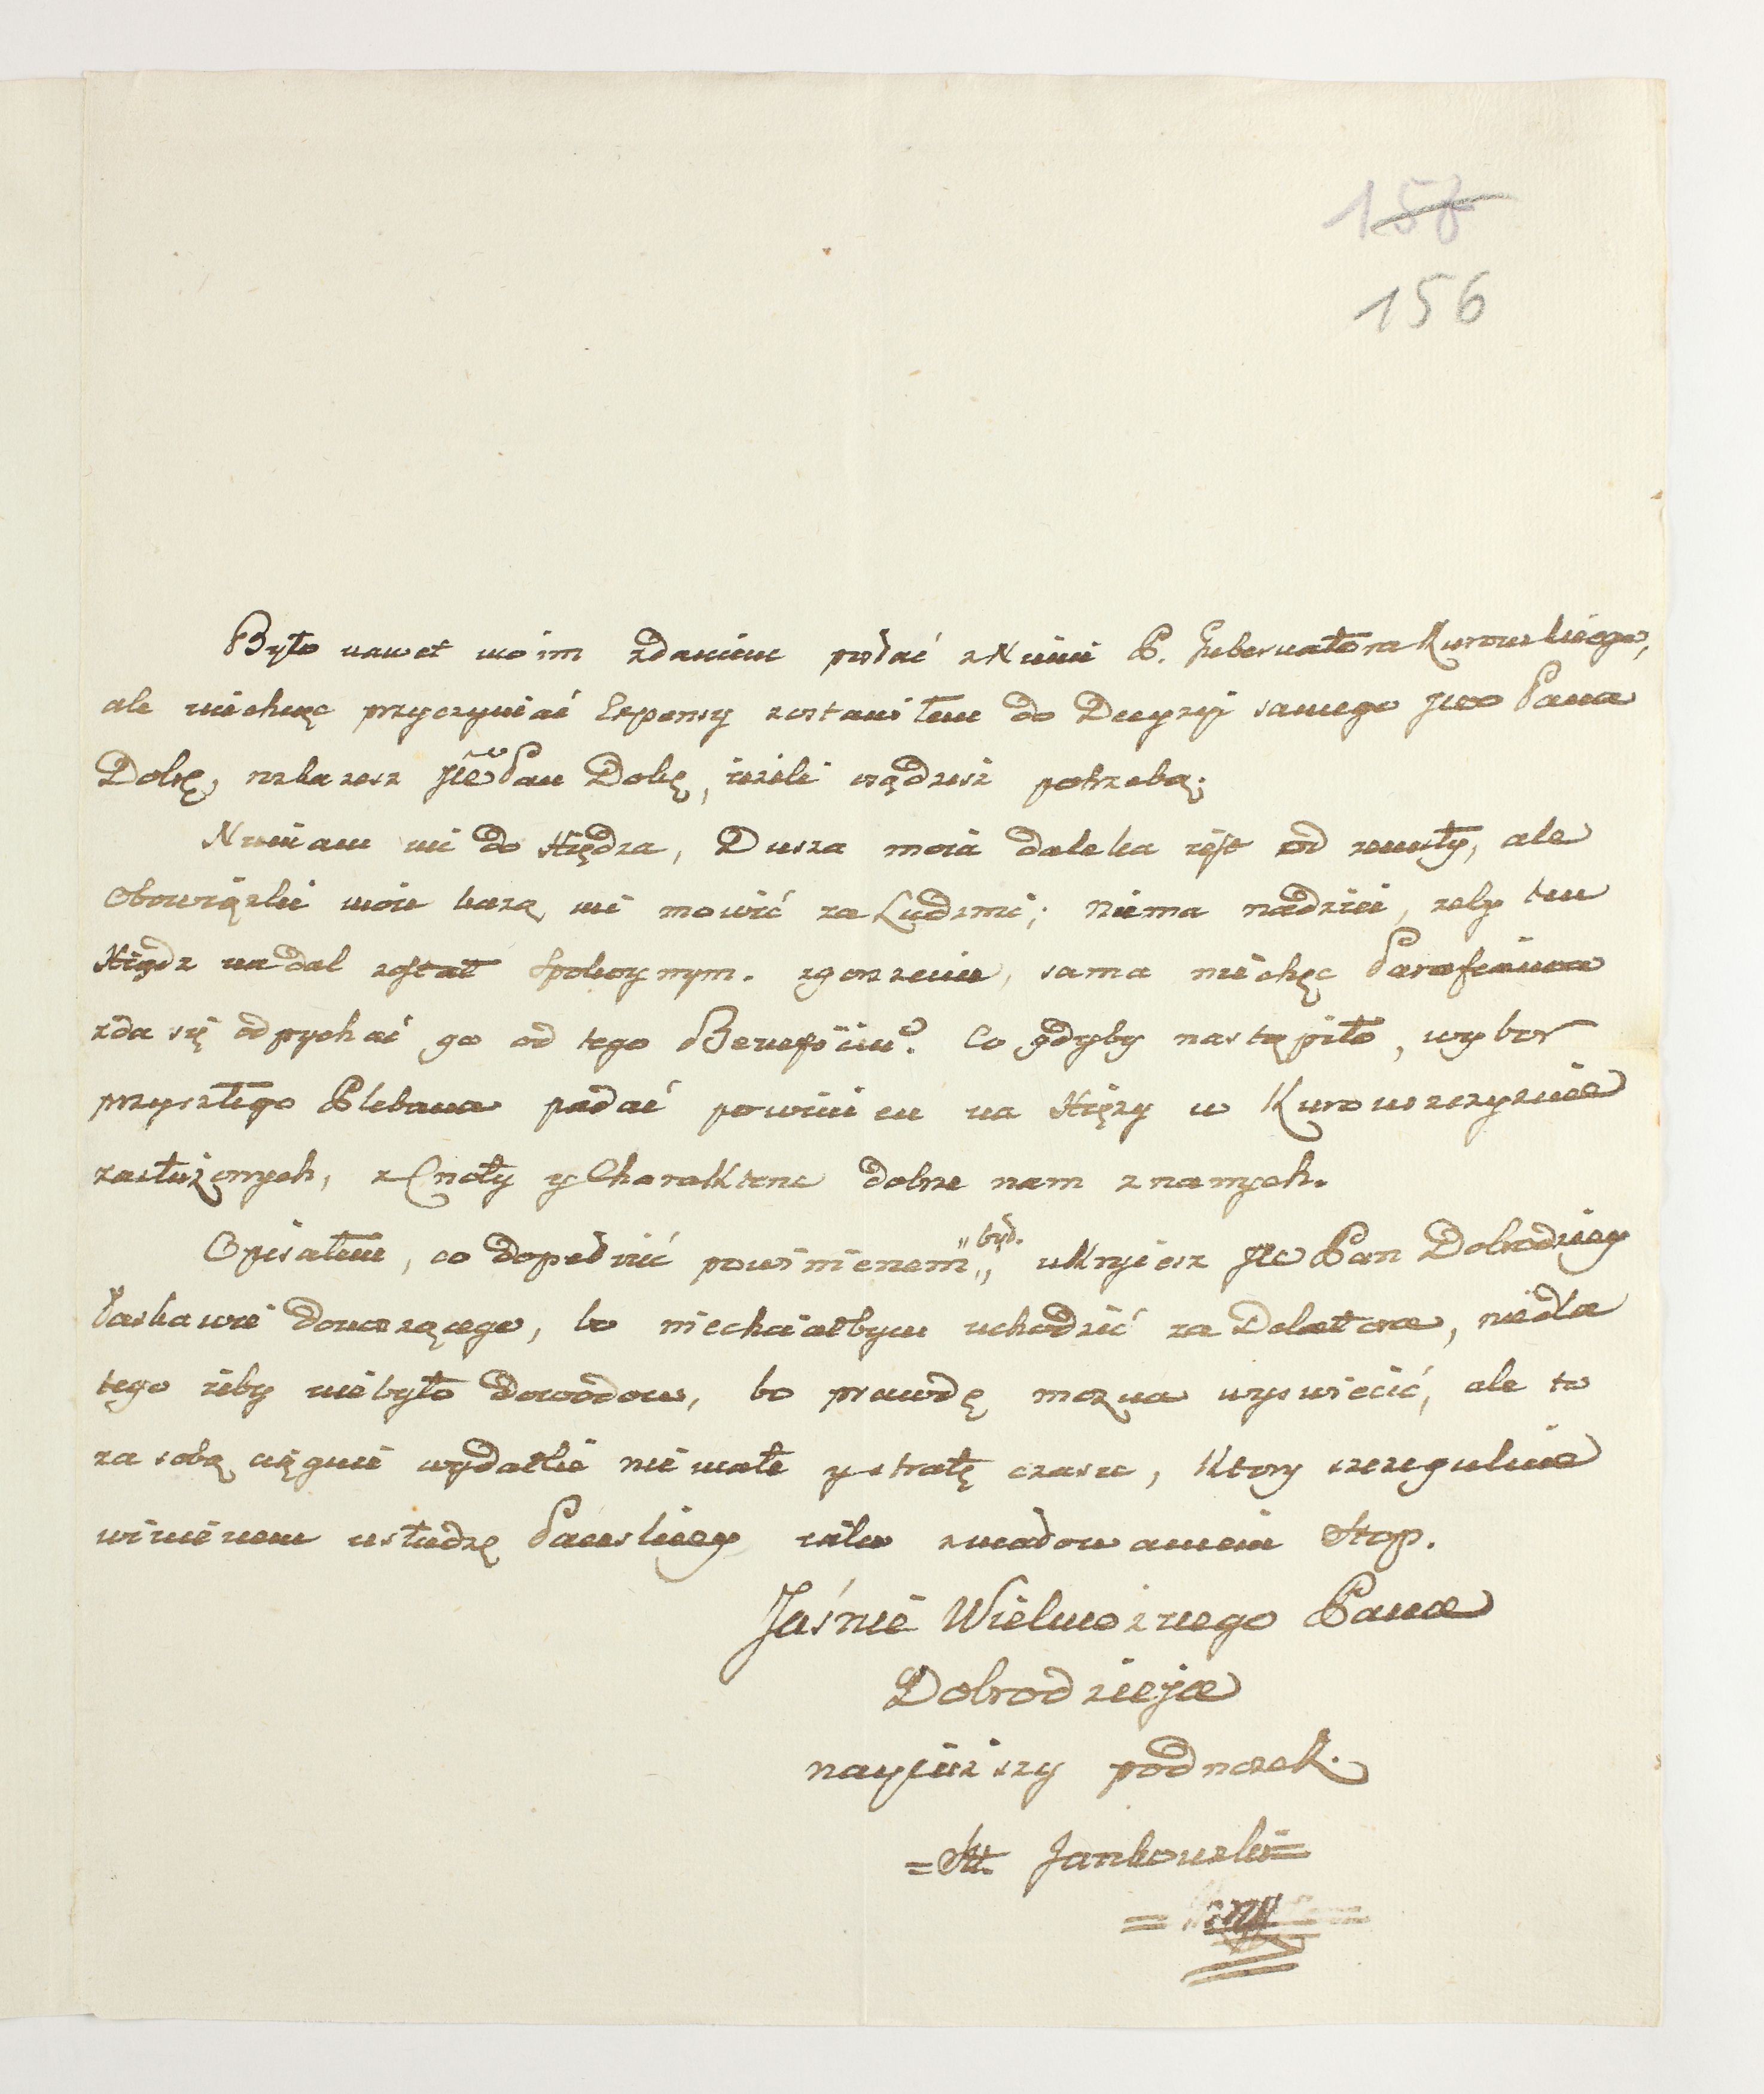 158
156
Było nawet moim zdaniem posłać z Nimi P. Gubernatora Kurowskiego,
ale niechcąc przyczyniać Expensy zostawiłem do Decyzyi samego JWo Pana
Dobrę, rozkażesz JW Pan Dobę, ieżeli osądzisz potrzebą;
Nimam nic do Xiędza, Dusza moia daleka iest od zemsty, ale
Obowiązki moie każą mi mowić za Ludzmi; Niema nadziei, zeby ten
Xiądz nadal został Spokoynym. zgorzenie, sama niechęc Parafianow
zda się odpychać go od tego Beneficiu? Co gdyby nastąpiło, wybor
przyszłego Plebana padać powinien na Xięży w Kurowszczyznie
zasłużonych, z Cnoty y Charakteru dobrze nam znanych.
Opisałem, co dopełnić powinienem „byd. ukryiesz JW Pan Dobrodziey
łaskawie donoszącego, bo niechciałbym uchodzić za Delatora, niedla
tego żeby niebyło dowodow, bo prawdę mozna wyswiecić, ale to
za sobą ciągnie wydatki nie małe y stratę czasu, Ktory szczegulnie
winienem usłudze Pańskiey
Stop.
Jaśnie Wielmożnego Pana
Dobrodzieja
nayniższy podnożek.
= Jankowski =